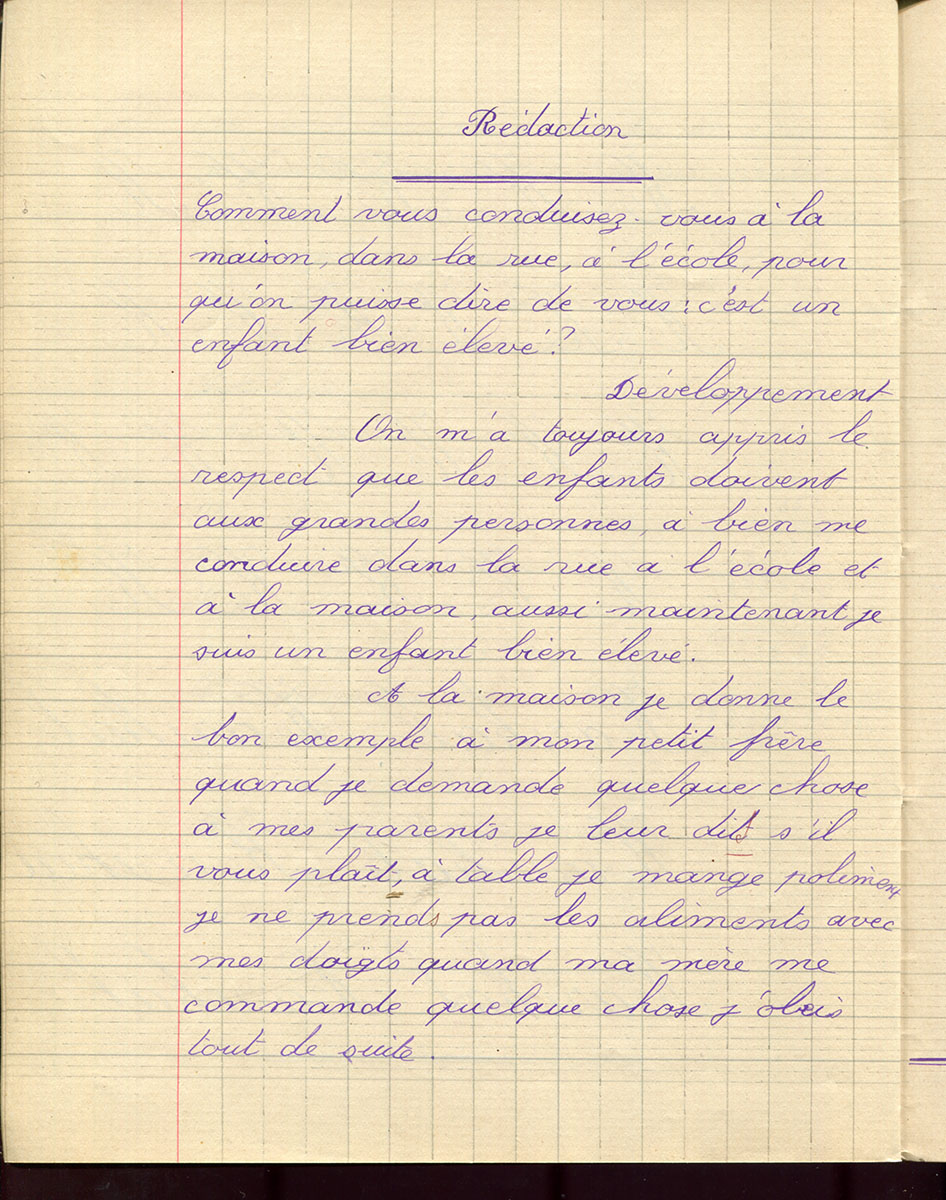 Rédaction
Comment vous conduisez-vous à la
maison, dans la rue, à l'école, pour
qu'on puisse dire de vous : c'est un
enfant bien élevé ?
Développement
On m'a toujours appris le
respect que les enfants doivent
aux grandes personnes, à bien me
conduire dans la rue a l'école et
à la maison, aussi maintenant je
suis un enfant bien élevé.
A la maison je donne le
bon exemple à mon petit frère
quand je demande quelque chose
à mes parents je leur dis s'il
vous plaît, à table je mange poliment
je ne prends pas les aliments avec
mes doigts quand ma mère me
commande quelque chose j'obéis
tout de suite.